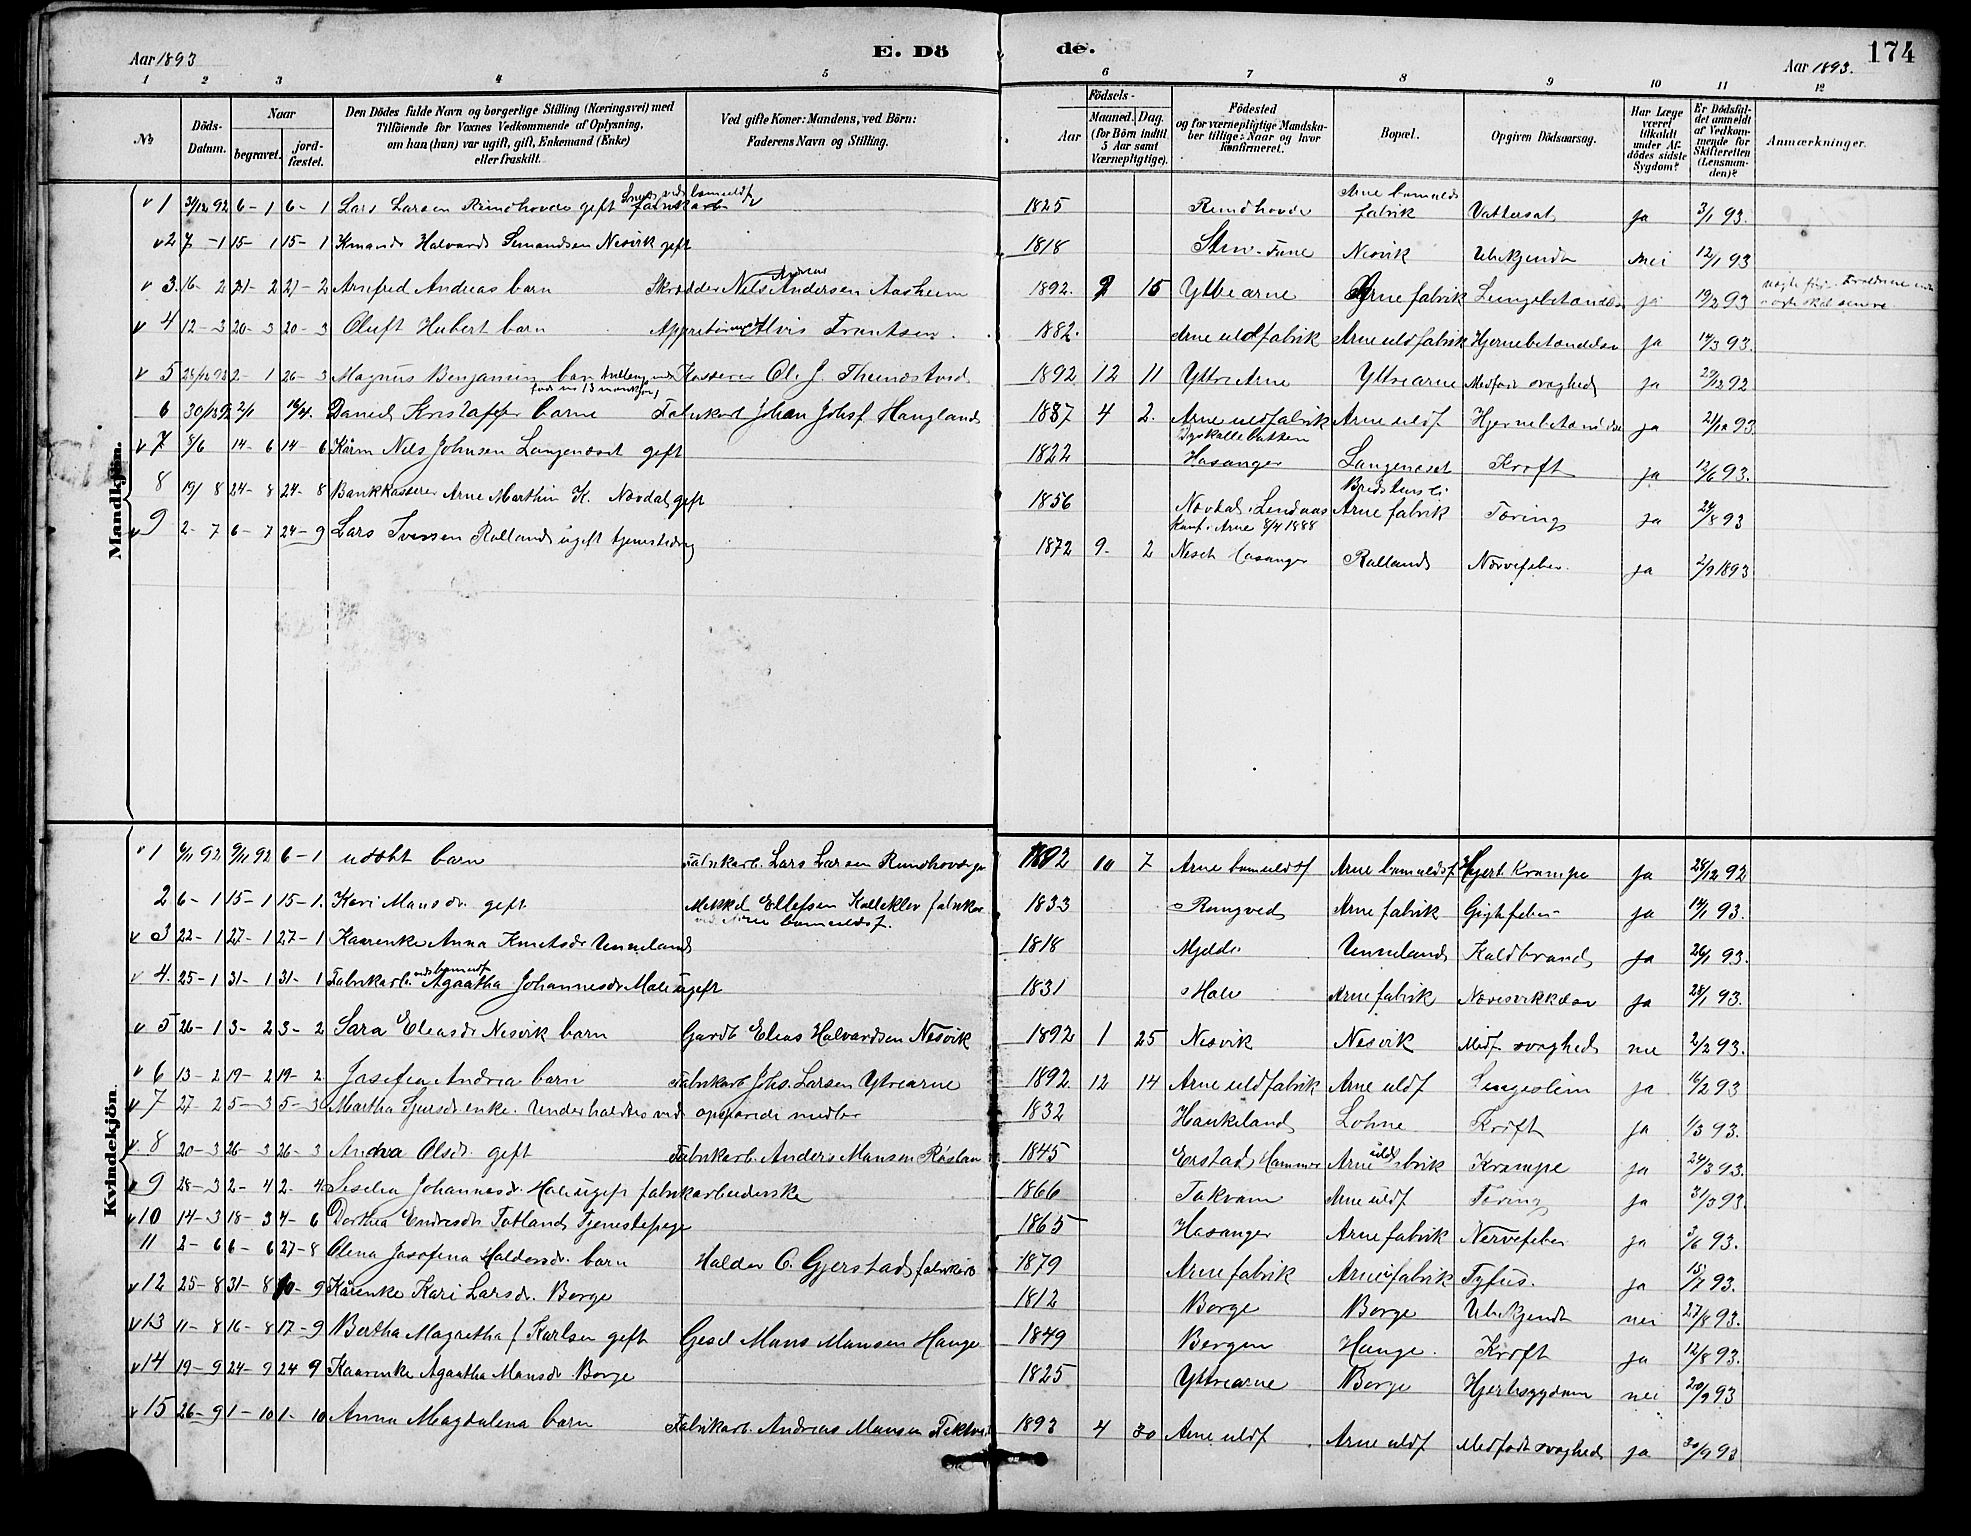 Aar 1893
E. Dö
de.
Aar 1893.
174
1 2 3 4 5 6 7 8 9 10 11 12
No
Döds-Datum.
Naar
begravet.
jord-fæstet.
Den Dödes fulde Navn og borgerlige Stilling (Næringsvei) med
Tilföiende for Voxnes Vedkommende af Oplysning,
om han (hun) var ugift, gift, Enkemand (Enke)
eller fraskilt.
Ved gifte Koner: Mandens, ved Börn:
Faderens Navn og Stilling.
Födsels-
Aar
Maaned. Dag.
(for Börn indtil
5 Aar samt
Værnepligtige).
Födested
og for værnepligtige Mandska-
ber tillige: Naar og hvor
konfirmeret.
Bopæl.
Opgiven Dödsaarsag.
Har Læge
været
tilkaldt
under Af-
dödes sidste
Sygdom?
Er Dödsfal-
det anmeldt
af Vedkom-
mende for
Skifteretten
(Lensman-
den)?
Anmærkninger.
Mandkjön.
1 31/12 92 6-1 6-1 Lars Larsen Rundhovde gift fabrikarb 1825 Rundhovde Arne bomulds fabrik Vattersot ja 3/1 93.
2 7-1 15-1 15-1 Halvard Nesvik gift 1818 Nesvik Ubekjendt nei 12/1 93
3. 16-2 21-2 21-2 Arnfred Andreas barn Skrædder Nils Andreas Andersen Aasheim 1892. 9 15 Ytre arne Arne fabrik ja 19/2 93
4 12-3 20-3 20-3 Oluft Hubert barn Alvis Frantsen. 1882. Arne uldfabrik Arne uldfabrik Hjernebetændelse ja 14/3 93.
5 2-1 26-3 Magnus Benjamin barn Kasserer Ol. J. 1892 12 11 Yttre Arne Yttrearne Medfødt svaghed ja 29/12 92
6 30/12 92 2/1 16/4. Daniel Kristaffer barn Fabrikarb Johan Johsf Haugland 1887 4 2. Arne uldfabrik Arne uldf Hjernebetændelse ja
7 8/6 14-6 14-6 Nils Johnsen gift 1822 Hosanger Kræft ja 12/6 93.
8 19/8 24-8 24-8 Bankkasserer Arne Marthin K. Novdal gift 1856 Arne fabrik Tæring ja 24/8 93
9 2-7 6-7 24-9 Lars Iversen Rolland ugift tjenestedreng 1872 9. 2 Konf. Arne 8/4 1888 Hosanger Rolland Nervefeber. ja 2/9 1893
Kvindekjön
1 92 92 6-1 udöbt barn Fabrikarb. Lars Larsen Rundhovde 1892 10 7 Arne bomuldsf Arne bomuldsf Hjert Krampe ja 28/12 92
2 6-1 15-1 15-1. Kari Mansdr gift Mikkel Ellefsen Kalleklev ved Arne bomuldsf. 1833 Rongved Arne fabrik Gigtfeber ja 14/1 93.
3 22-1 27-1 27-1 Kaarenke Anna Knutsdr Unneland 1818 Mjelde Unneland Koldbrand ja 26/1 93.
4. 25-1 31-1 31-1 Fabrikarb. ved bomuldf Agaatha Johannesdr Hole ugift 1831 Hole Arne fabrik ja 28/1 93.
5 26-1 3-2 3-2 Sara Eliasdr Nesvik barn Gardb Elias Halvardsen Nesvik 1892 1 25 Nesvik Nesvik Medf svaghed nei 2/2 93.
6 13-2 19-2 19-2 Josefea Andrea barn Fabrikarb Johs. Larsen Ytrearne 1892. 12 14 Arne uldfabrik Arne uldf ja 16/2 93
7 27-2 5-3 5-3 Martha Sjursdr enke. Underholdtes ved opsparede midler 1832 Haukeland Lohne Kræft ja 1/3 93.
8 20-3 26-3 26-3 Andrea Olsdr gift Fabrikarb. Anders Mansen 1845 Erstad Hammer Arne uldfabrik Krampe ja 24/3 93.
9 28-3 2-4 2-4 Seselia Johannesdr. Hole ugift fabrikarbeiderske 1866 Takvam Arne uldf Tæring ja 31/3 93.
10 14-3 18-3 4-6 Dorthea Endresdr Totland Tjenestepige 1865 Hosanger Arne fabrik Nervefeber ja 3/6 93.
11 2-6 6-6 27-8 Olena Josefena Haldorsdr. barn Haldor O. Gjerstad fabrikarb 1879 Arne fabrik Arne fabrik Tyfus. ja 93.
12 25-8 31-8 10-9 Kårenke Kari Larsdr. Borge 1812 Borge Borge Ubekjendt nei 27/8 93.
13 11-8 16-8 17-9 Bertha Magretha f Karlsen gift Mans Mansen Hauge 1849 Bergen Hauge. Kræft ja 12/8 93.
14 19-9 24-9 24 9 Kaarenke Agaatha Mansdr Borge 1825 Yttrearne Borge Hjertesygdom nei 20/9 93
15 26-9 1-10 1-10 Anna Magdalena barn Fabrikarb. Andreas Mansen 1893 4 30 Arne uldf. Arne uldf Medfödt svaghed ja 30/9 93